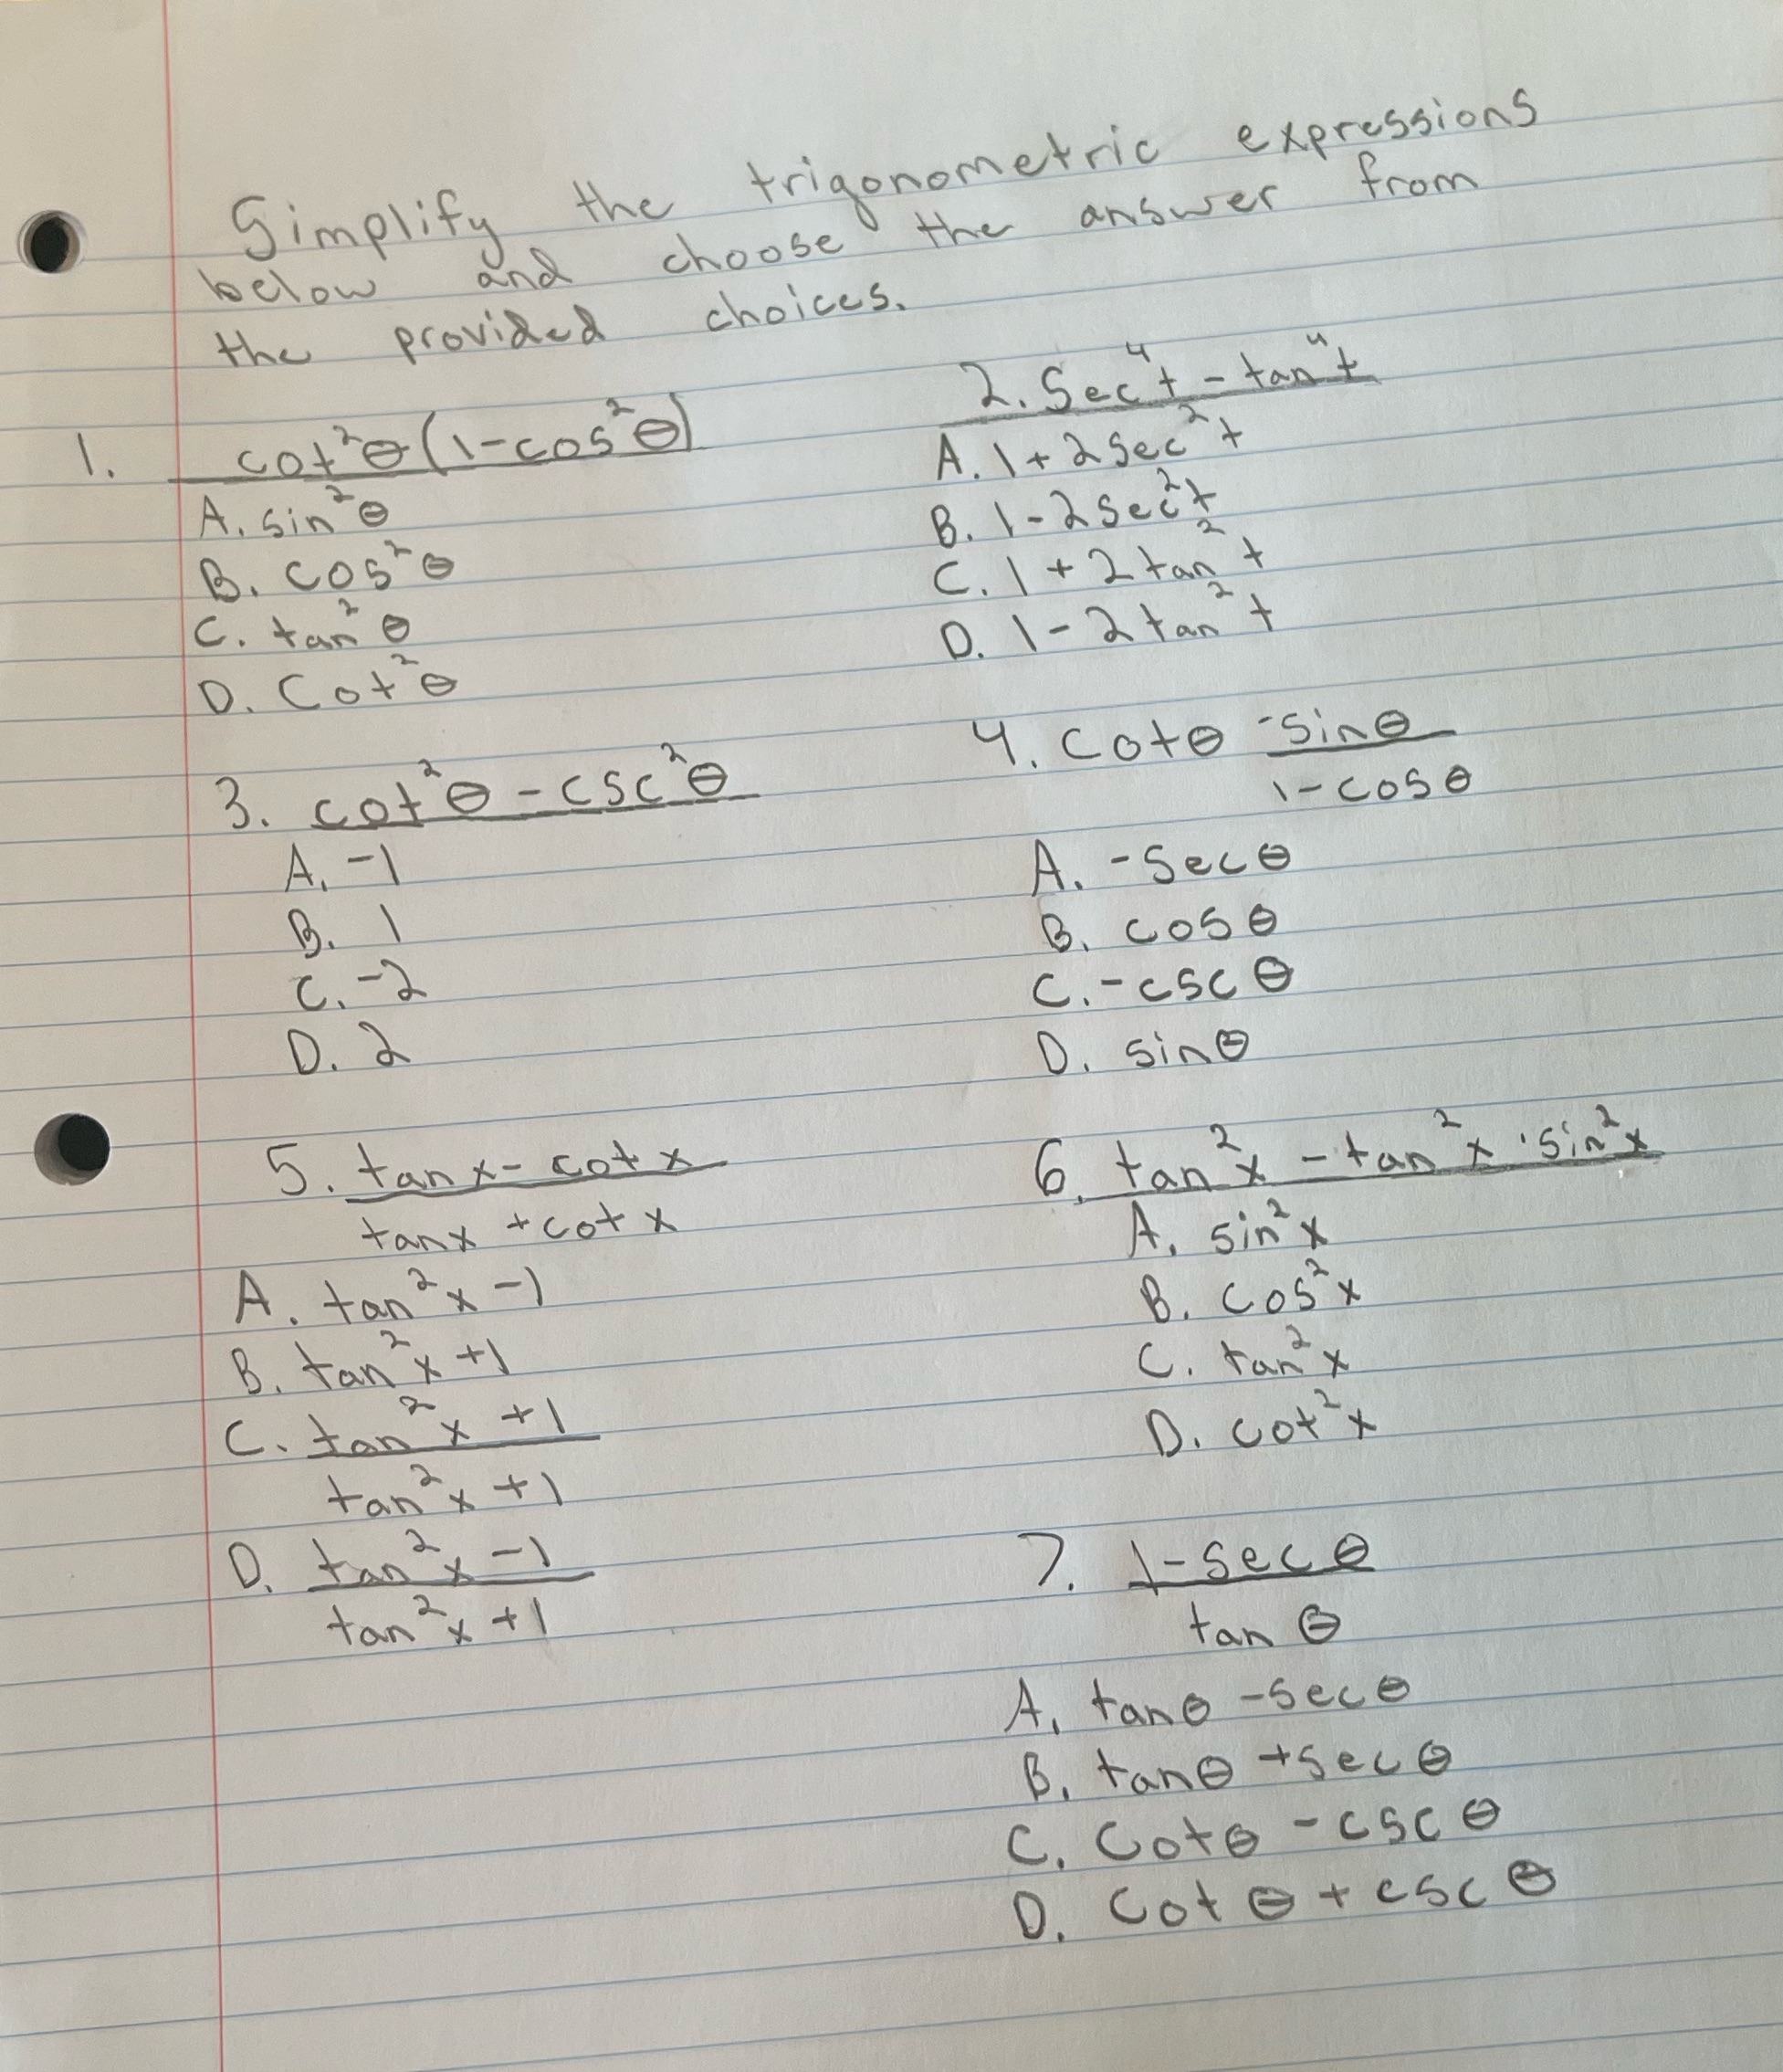 Simplify the trigonometric expressions
below and choose the answer from
the provided choices.
1. cot²θ(1-cos²θ)
A. sin²θ
B. cos²θ
C. tan²θ
D. Cot²θ
2. Sec⁴t - tan⁴t
A. 1 + 2 Sec²t
B. 1 - 2 Sec²t
C. 1 + 2 tan²t
D. 1 - 2 tan²t
3. cot²θ - csc²θ
A. -1
B. 1
C. -2
D. 2
4. Cotθ -sinθ
1-cosθ
A. -Secθ
B. cosθ
C. -cscθ
D. sinθ
5. tanx - cotx
tanx + cotx
A. tan²x -1
B. tan²x +1
C. tan²x +1
tan²x +1
D. tan²x -1
tan²x +1
6. tan²x - tan²x · sin²x
A. sin²x
B. cos²x
C. tan²x
D. cot²x
7. 1-secθ
tanθ
A. tanθ -secθ
B. tanθ +secθ
C. Cotθ -cscθ
D. Cotθ + cscθ